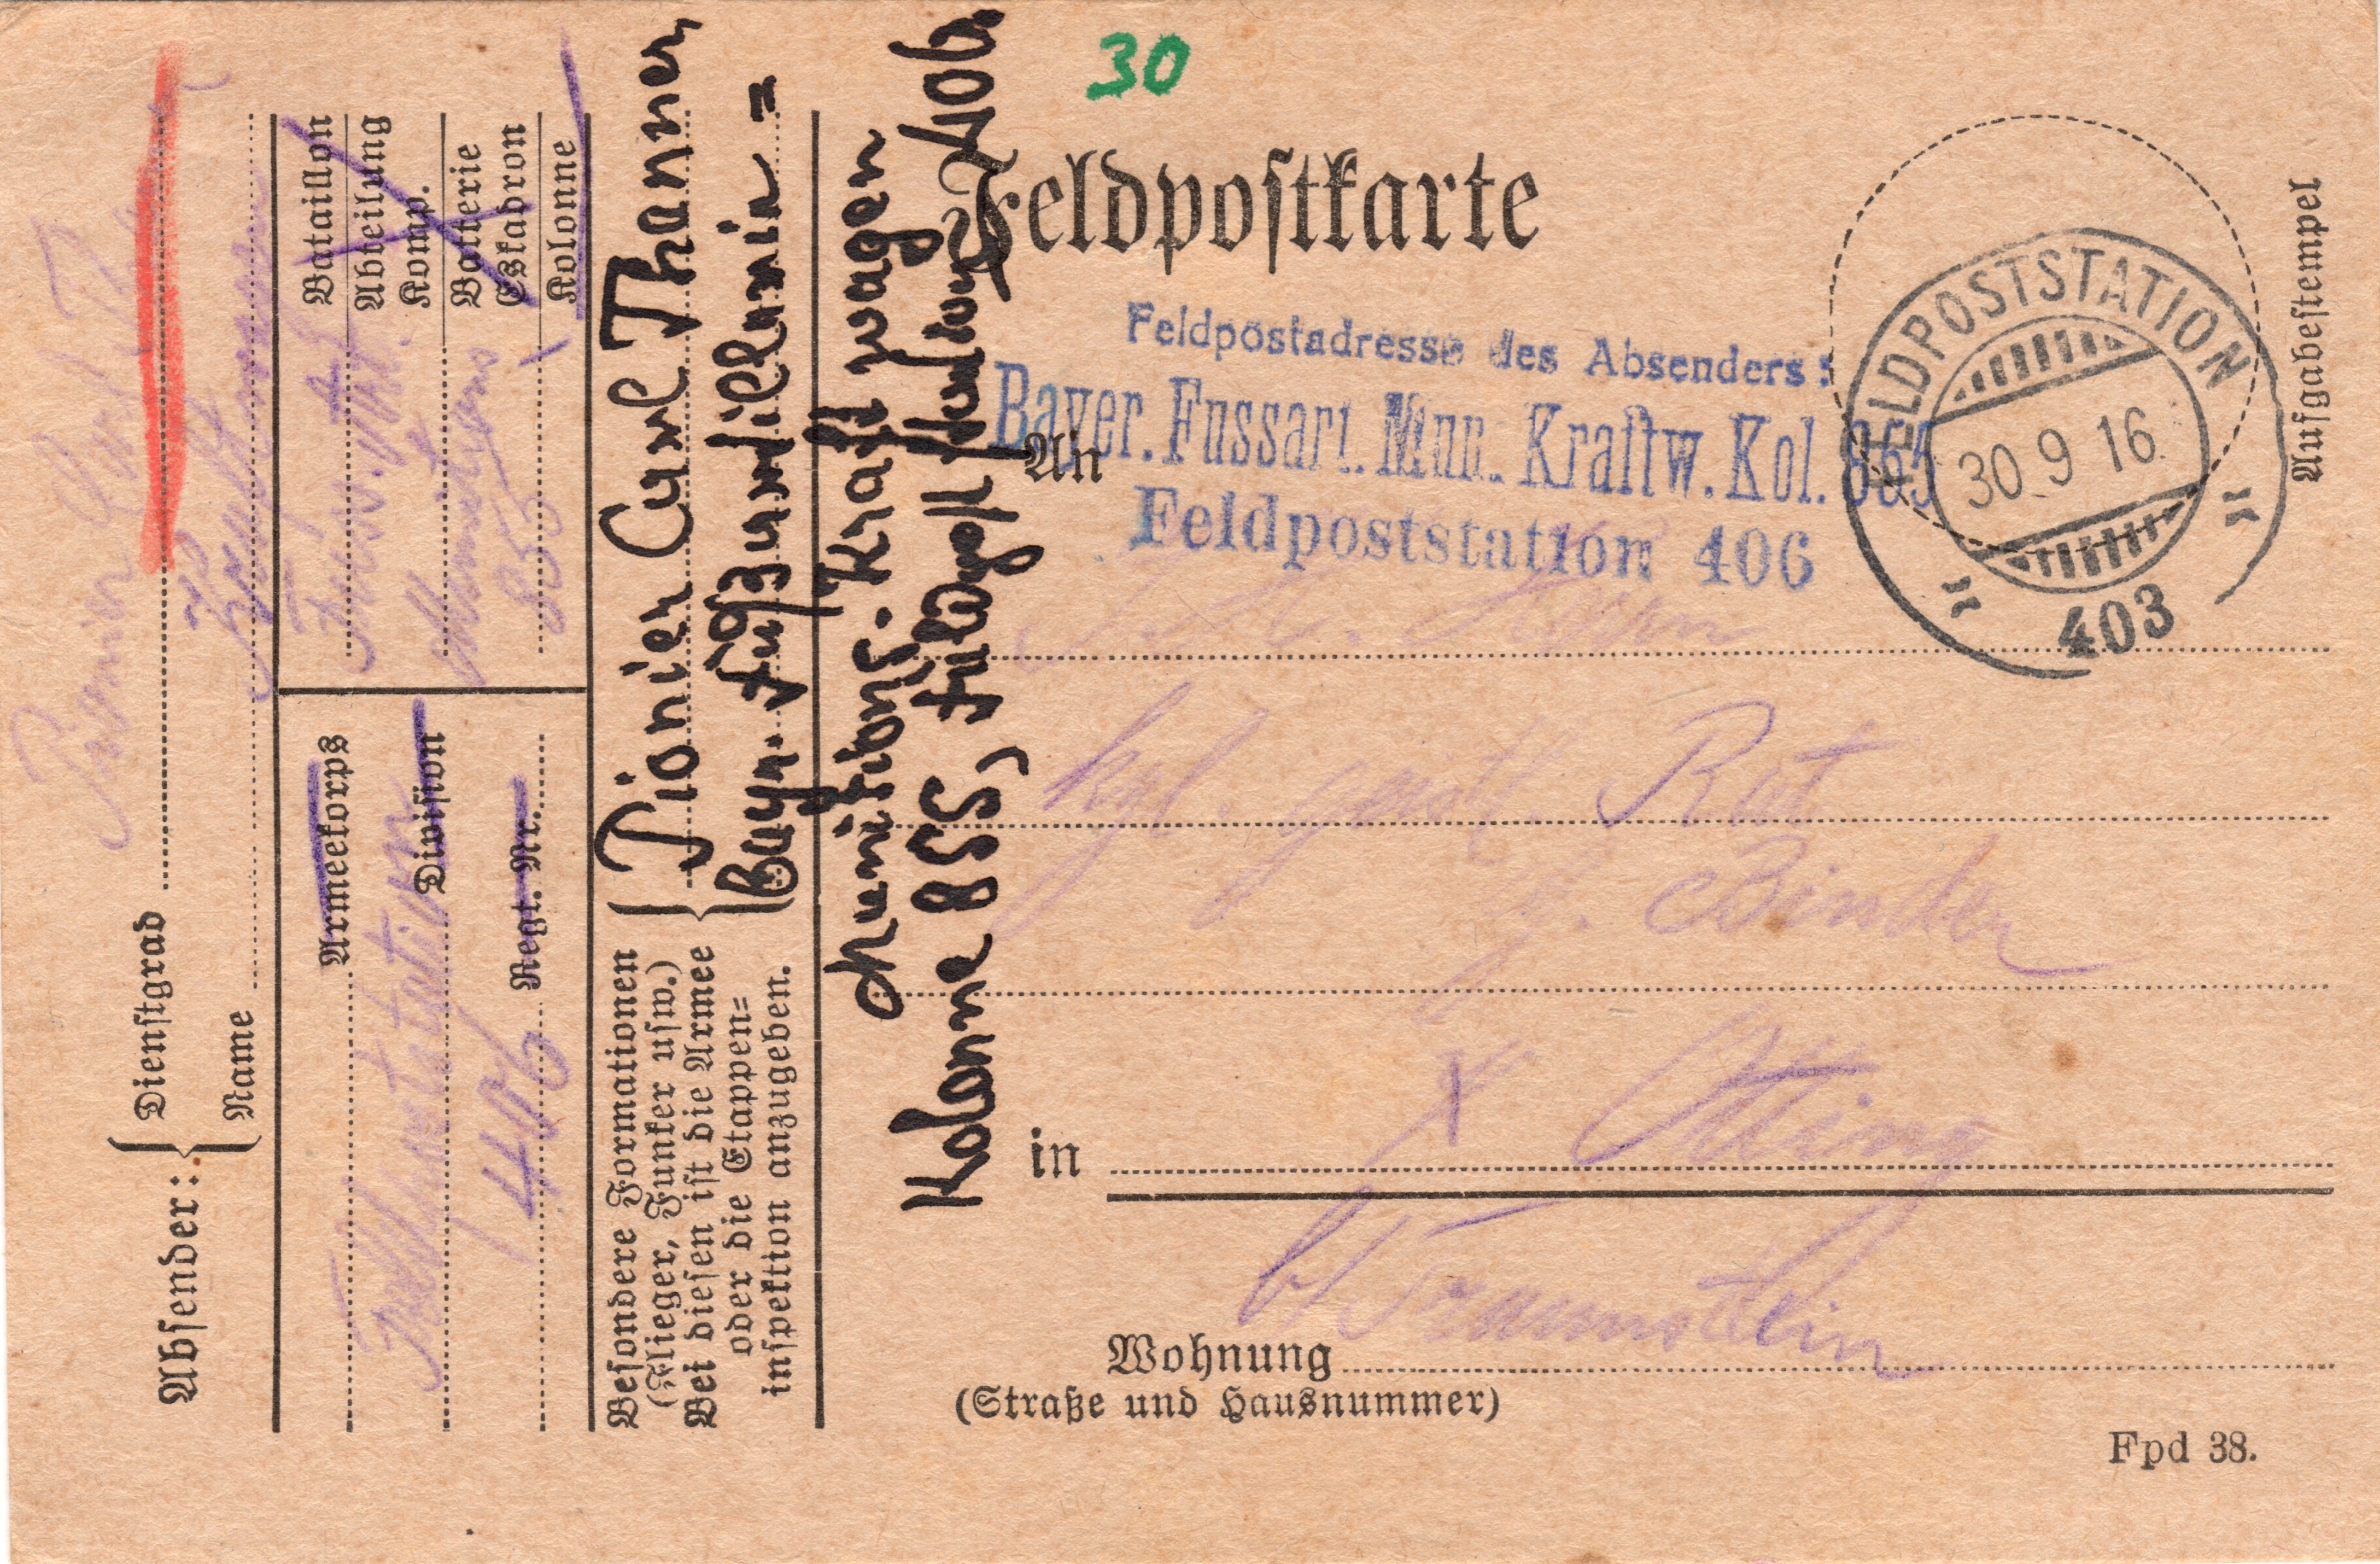 30
Feldpostkarte
Feldpostadresse des Absenders:
Bayer. Fussart. Mun. Kraftw. Kol. 855
Feldpoststation 406
FELDPOSTSTATION
30.9.16
403
Aufgabestempel
An
kgl. geistl. Rat
J. Binder
in
Otting
b/ Traunstein
Wohnung
(Straße und Hausnummer)
Fpd 38.
Absender:
Dienstgrad
Pionier Carl
Name
Bataillon
Abteilung
Komp.
Batterie
Eskadron
Kolonne
Munitions
855
Armeekorps
Division
Regt. Nr.
Feldpoststation
406
Besondere Formationen
(Flieger, Funker usw.)
Bei diesen ist die Armee
oder die Etappen=
inspektion anzugeben.
Pionier Carl Thanner
Bayr. Fußzartillerie=
Munitions. Kraftwagen
Kolonne 855, Feldpost Station 406.